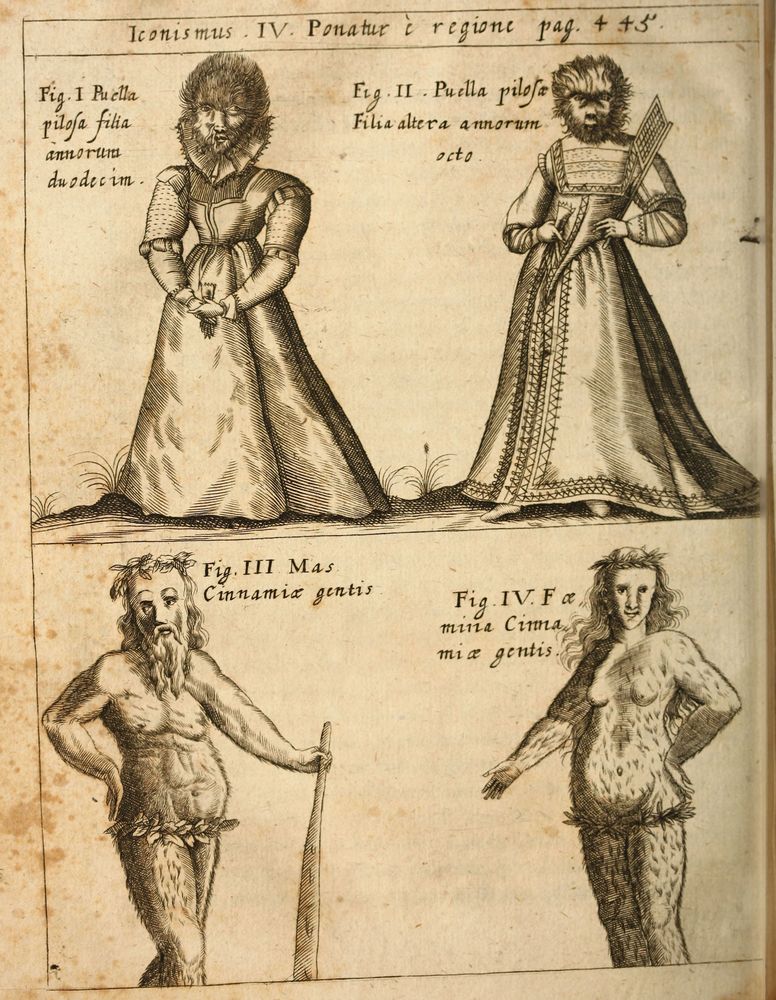 Iconismus . IV. Ponatur è regione pag. 445.
Fig. I Puella
pilosa filia
annorum
duodecim.
Fig. II. Puella pilosæ
Filia altera annorum
octo.
Fig. III Mas
Cinnamiæ gentis
Fig. IV. Fæ
mina Cinna
miæ gentis.